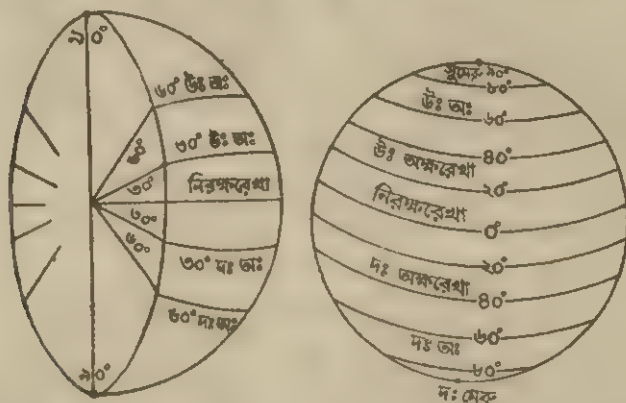 ৯০°
৬০° উঃ অঃ
৬০°
৩০° উঃ অঃ
৩০°
নিরক্ষরেখা
৩০°
৬০°
৩০° দঃ অঃ
৬০° দঃ অঃ
৯০°
সুমেরু ৯০°
৮০°
উঃ অঃ
৬০°
৪০°
উঃ অক্ষরেখা
২০°
নিরক্ষরেখা
০°
২০°
দঃ অক্ষরেখা
৪০°
৬০°
দঃ অঃ
৮০°
দঃ মেরু